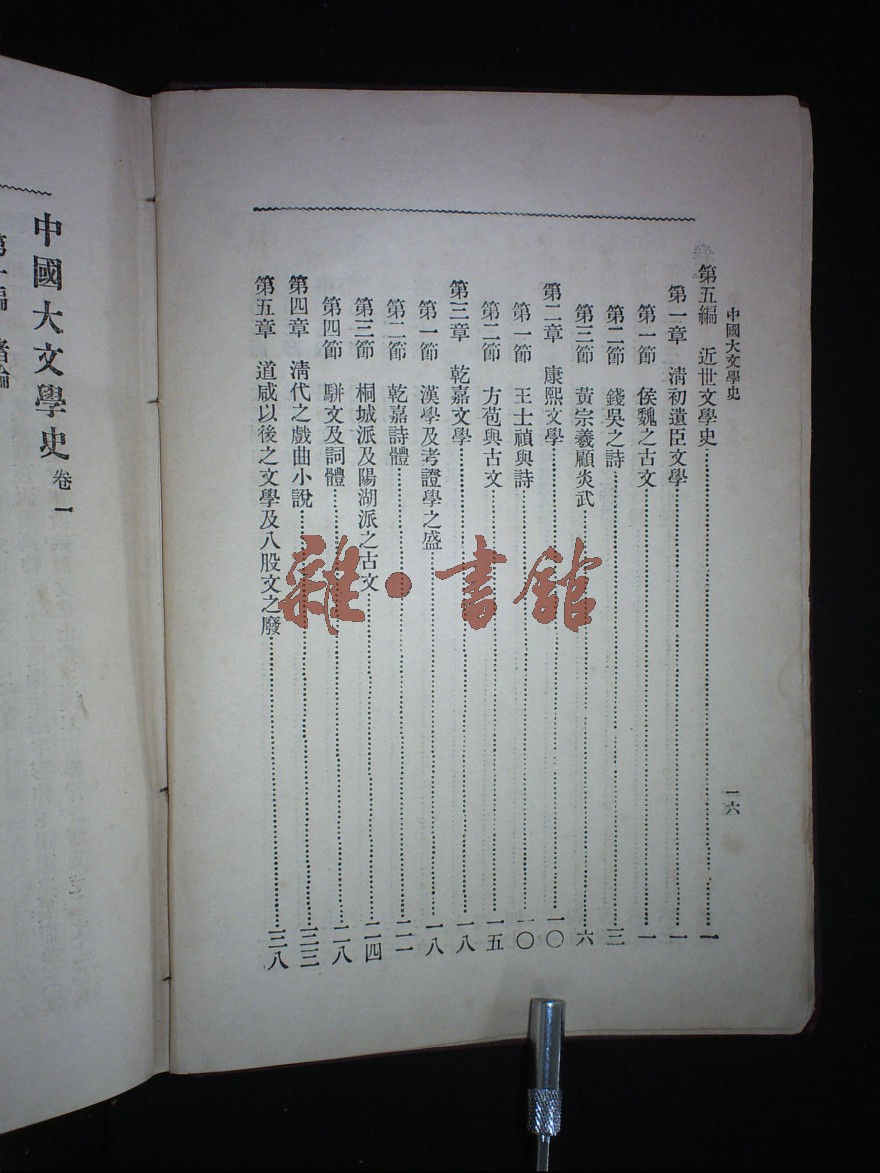 中國大文學史
一六
第五編 近世文學史……一
第一章 清初遺臣文學……一
第一節 侯魏之古文……一
第二節 錢吳之詩……三
第三節 黃宗羲顧炎武……六
第二章 康熙文學……一〇
第一節 王士禎與詩……一〇
第二節 方苞與古文……一五
第三章 乾嘉文學……一八
第一節 漢學及考證學之盛……一八
第二節 乾嘉詩體……二一
第三節 桐城派及陽湖派之古文……二四
第四節 駢文及詞體……二八
第四章 清代之戲曲小說……三三
第五章 道咸以後之文學及八股文之廢……三八
中國大文學史 卷一
第一編 緒論
雜·書館